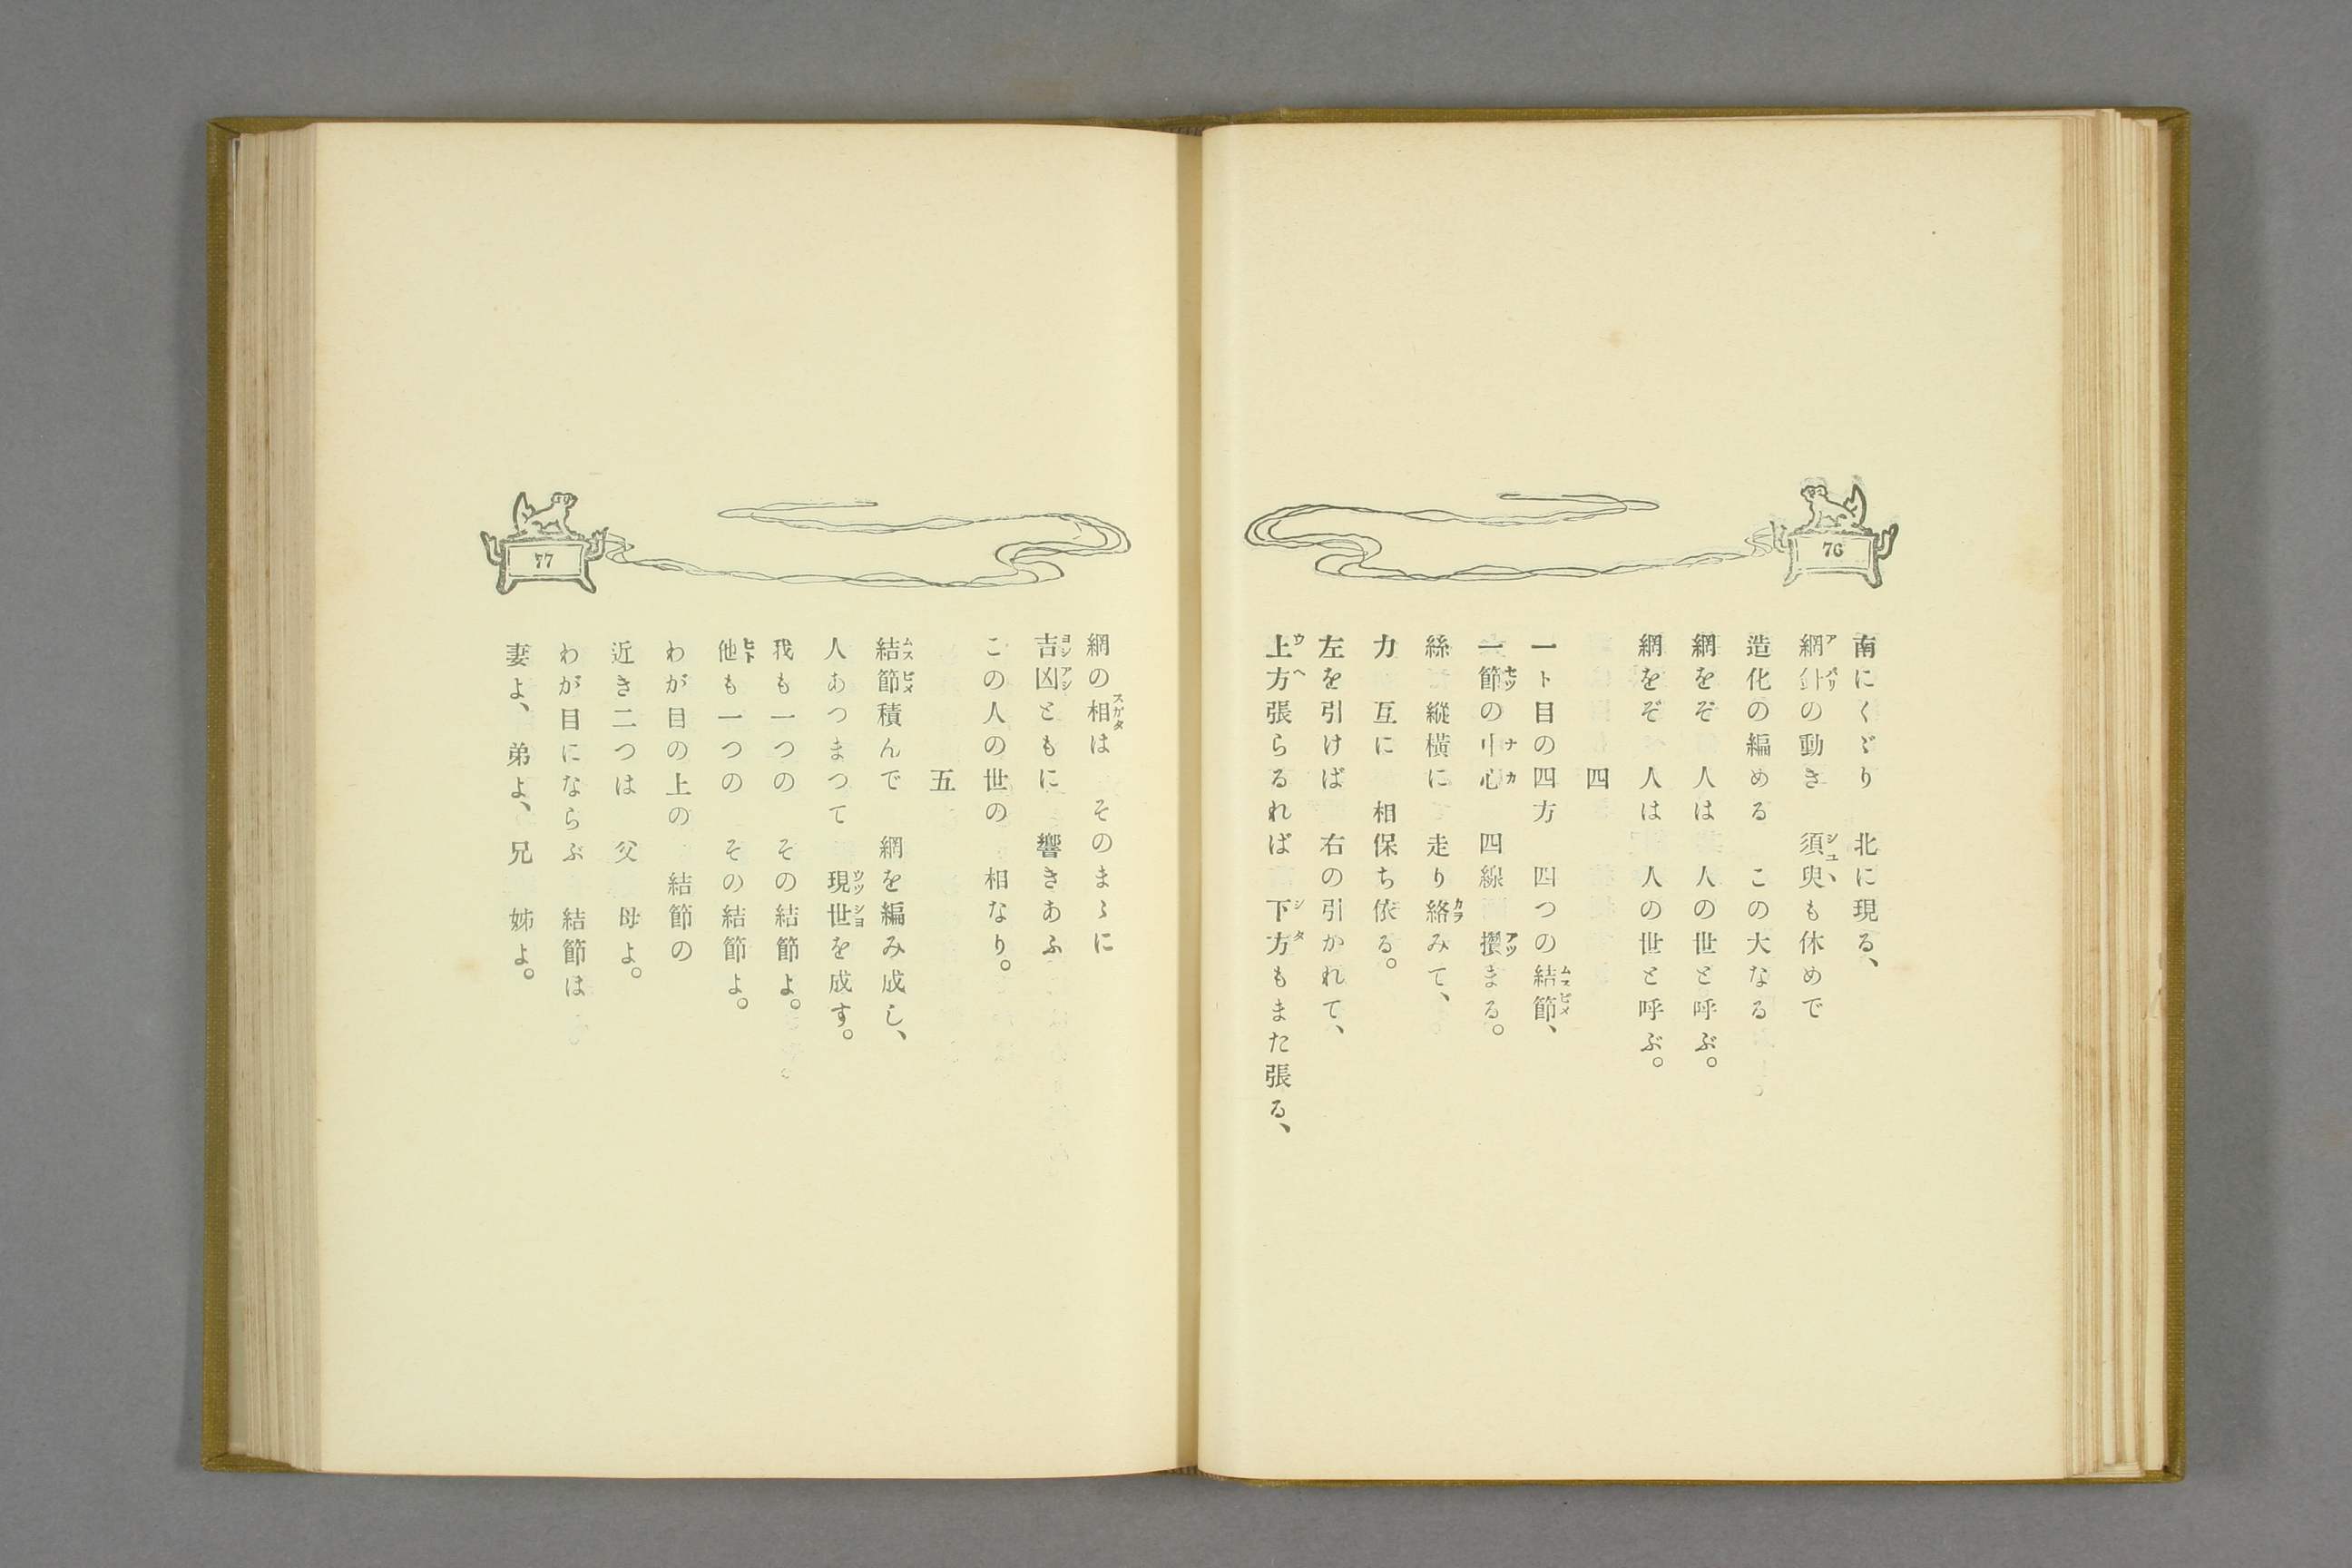 76
南にくゞり　北に現る、
網針の動き　須臾も休めで
造化の編める　この大なる
網をぞ　人は　人の世と呼ぶ。
網をぞ　人は　人の世と呼ぶ。
四
一ト目の四方　四つの結節、
一節の中心　四線　攢まる。
絲　縱横に　走り絡みて、
力　互に　相保ち依る。
左を引けば　右の引かれて、
上方張らるれば　下方もまた張る、
77
網の相は　そのまゝに
吉凶ともに　響きあふ
この人の世の　相なり。
五
結節積んで　網を編み成し、
人あつまつて　現世を成す。
我も一つの　その結節よ。
他も一つの　その結節よ。
わが目の上の　結節の
近き二つは　父　母よ。
わが目にならぶ　結節は
妻よ、弟よ、兄　姊よ。